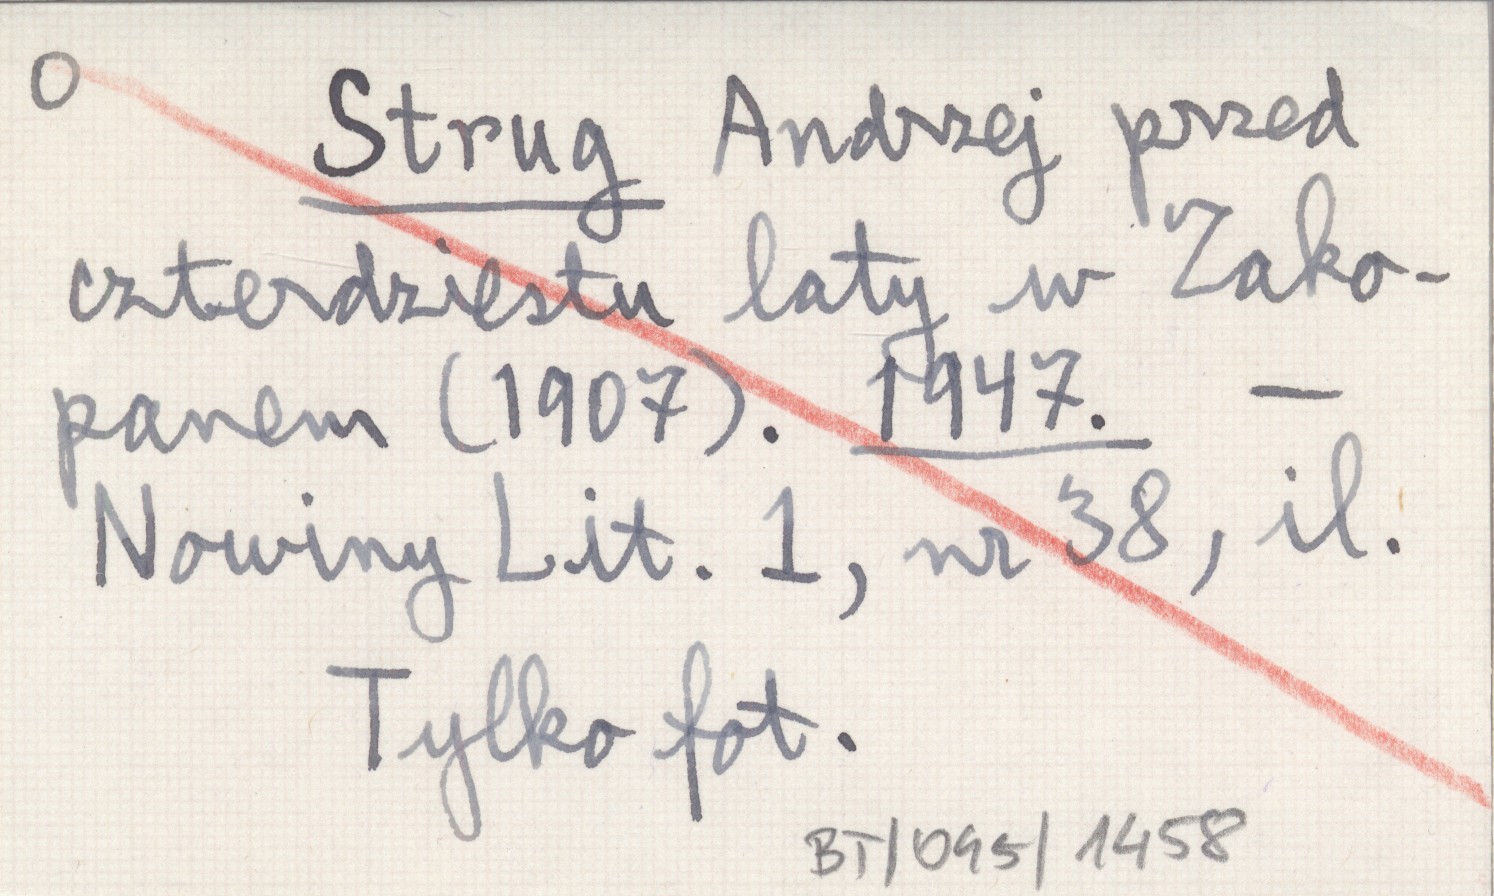 O
Strug Andrzej przed
czterdziestu laty w Zako-
panem (1907). 1947. —
Nowiny Lit. 1, nr 38, il.
Tylko fot.
BT/095/1458